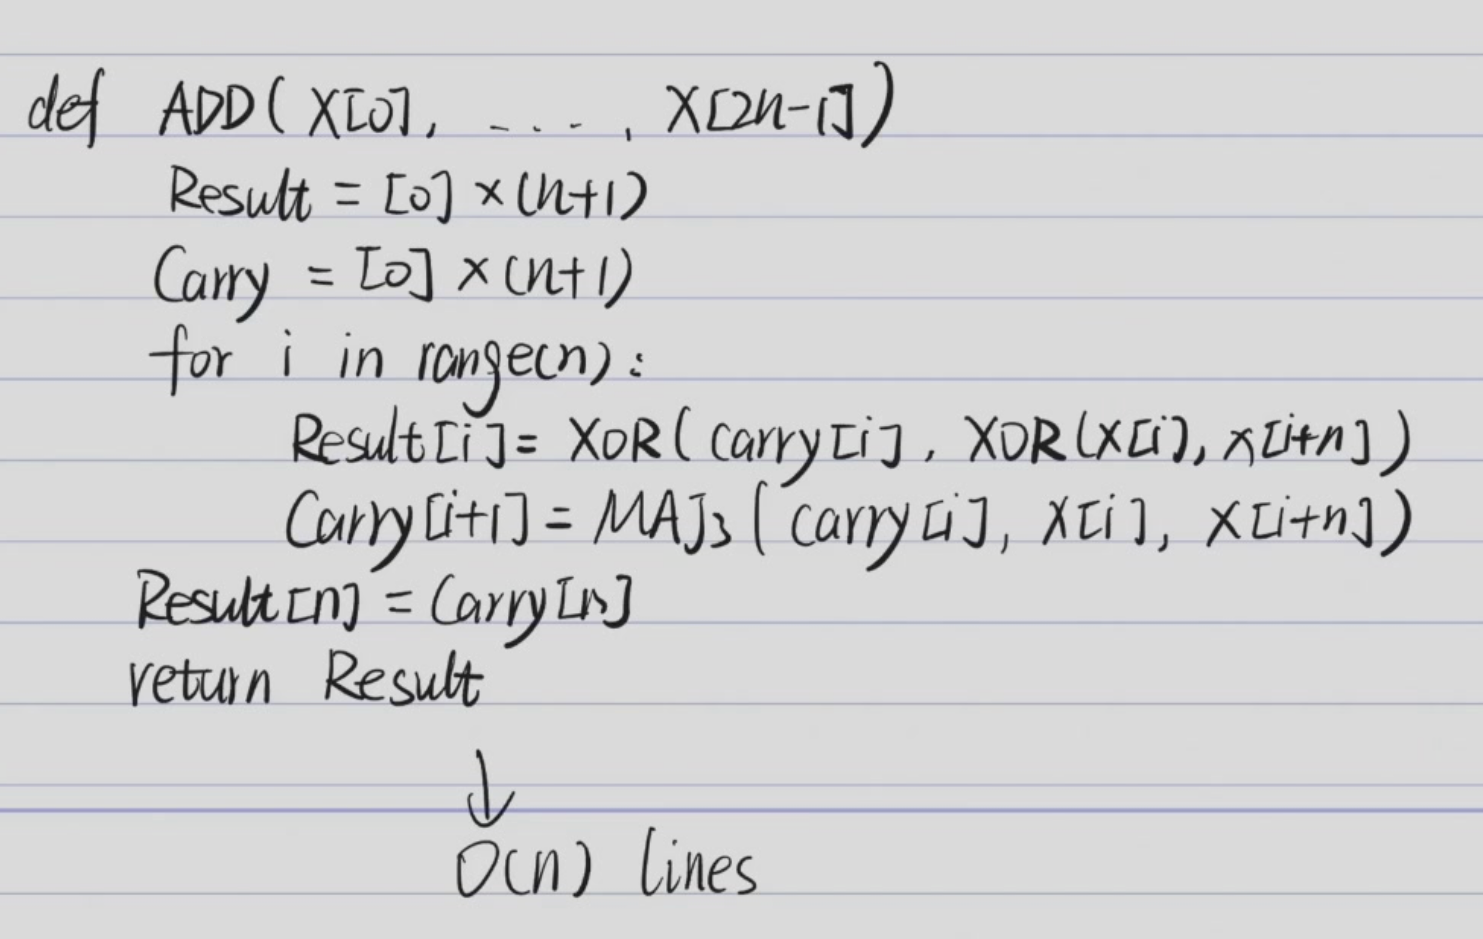 def ADD(X[0], ...., X[2n-1])
Result = [0] × (n+1)
Carry = [0] × (n+1)
for i in range(n):
Result[i] = XOR(carry[i], XOR(X[i], x[i+n])
Carry[i+1] = MAJ3(carry[i], X[i], X[i+n])
Result[n] = Carry[n]
return Result
↓
O(n) lines